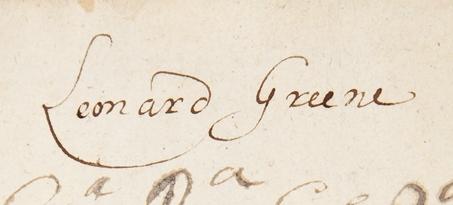 Leonard Greene